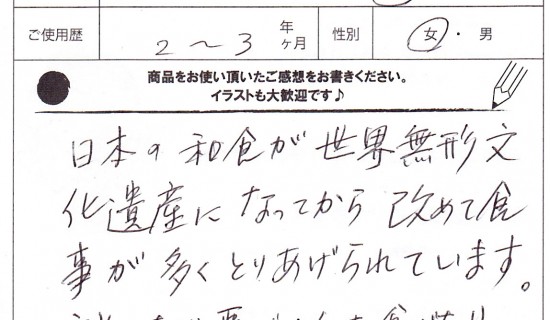 ご使用歴 2～3 年ヶ月 性別 女・男
商品をお使い頂いたご感想をお書きください。
イラストも大歓迎です♪
日本の和食が世界無形文
化遺産になってから改めて食
事が多くとりあげられています。